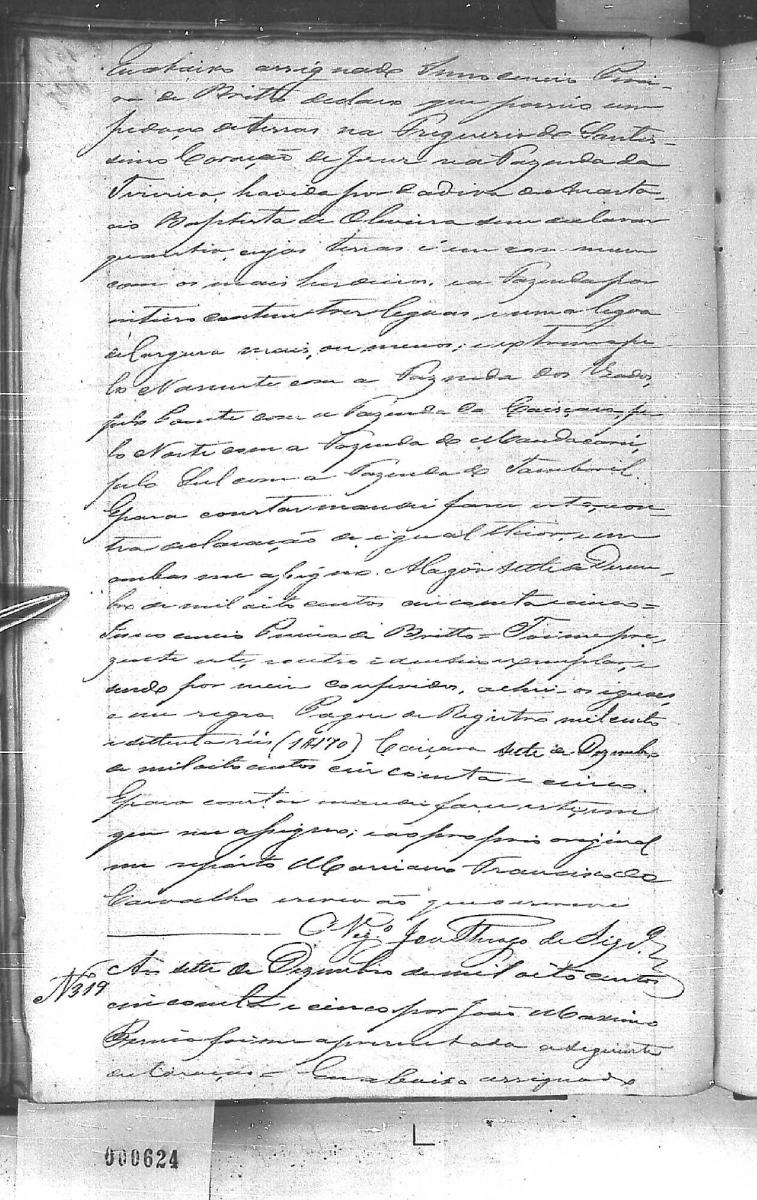 Eu abaixo assignado Innocencio Perei-
ra de Britto declaro que possuo um
pedaço de terras na Freguezia do Santis-
simo Coração de Jesus na Fazenda da
havida por dadiva de
Baptista de Oliveira sem declarar
quantia, cujas terras é em com mum
com os mais herdeiros, e a Fazenda por
inteiro contem tres legoas, e uma legoa
de largura mais, ou menos; e extrema pe-
lo Nascente com a Fazenda dos
pelo Poente com a Fazenda da Caiçara, pe-
lo Norte com a Fazenda do Mandacarú,
pelo Sul com a Fazenda do Tamboril.
E para constar mandei fazer este, e ou-
tra declaração de igual theor, e em
ambas me assigno. Alagôa sette de Dezem-
bro de mil oito centos cincoenta e cinco =
Innocencio Pereira de Britto = Foi me pre-
zente este, e outro identico exemplar, e
sendo por mim conferidos, achei-os iguaes,
e me regra. Pagou de Registro mil cento
e settenta réis (1$170) Caiçara sete de Dezembro
de mil oito centos cincoenta e cinco.
E para constar mandei fazer este, em
que me assigno; e ao proprio original
me repórto Marriano Francisco de
Carvalho escrivão que o escrevi
O Vigº João Thiago de
Nº 319
Aos sette de Dezembro de mil oito centos
cincoenta e cinco por João Maximo
Pereira foi me aprezentada a seguinte
declaração = Eu abaixo assignado
000624